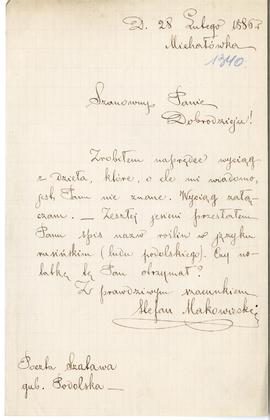 D. 28 Lutego 1886 r
Michałówka
1340
Szanowny Panie
Dobrodzieju!
Zrobiłem naprędce wyciąg
z dzieła, które, o ile mi wiadomo,
jest Panu nie znane. Wyciąg załą-
czam. — Zeszłej jesieni przesłałem
Panu spis nazw roślin w języku
rusińskim (ludu podolskiego). Czy no-
tatkę tę Pan otrzymał?
Z prawdziwym szacunkiem
Stefan Makowiecki
Poczta Szatawa
gub. Podolska —